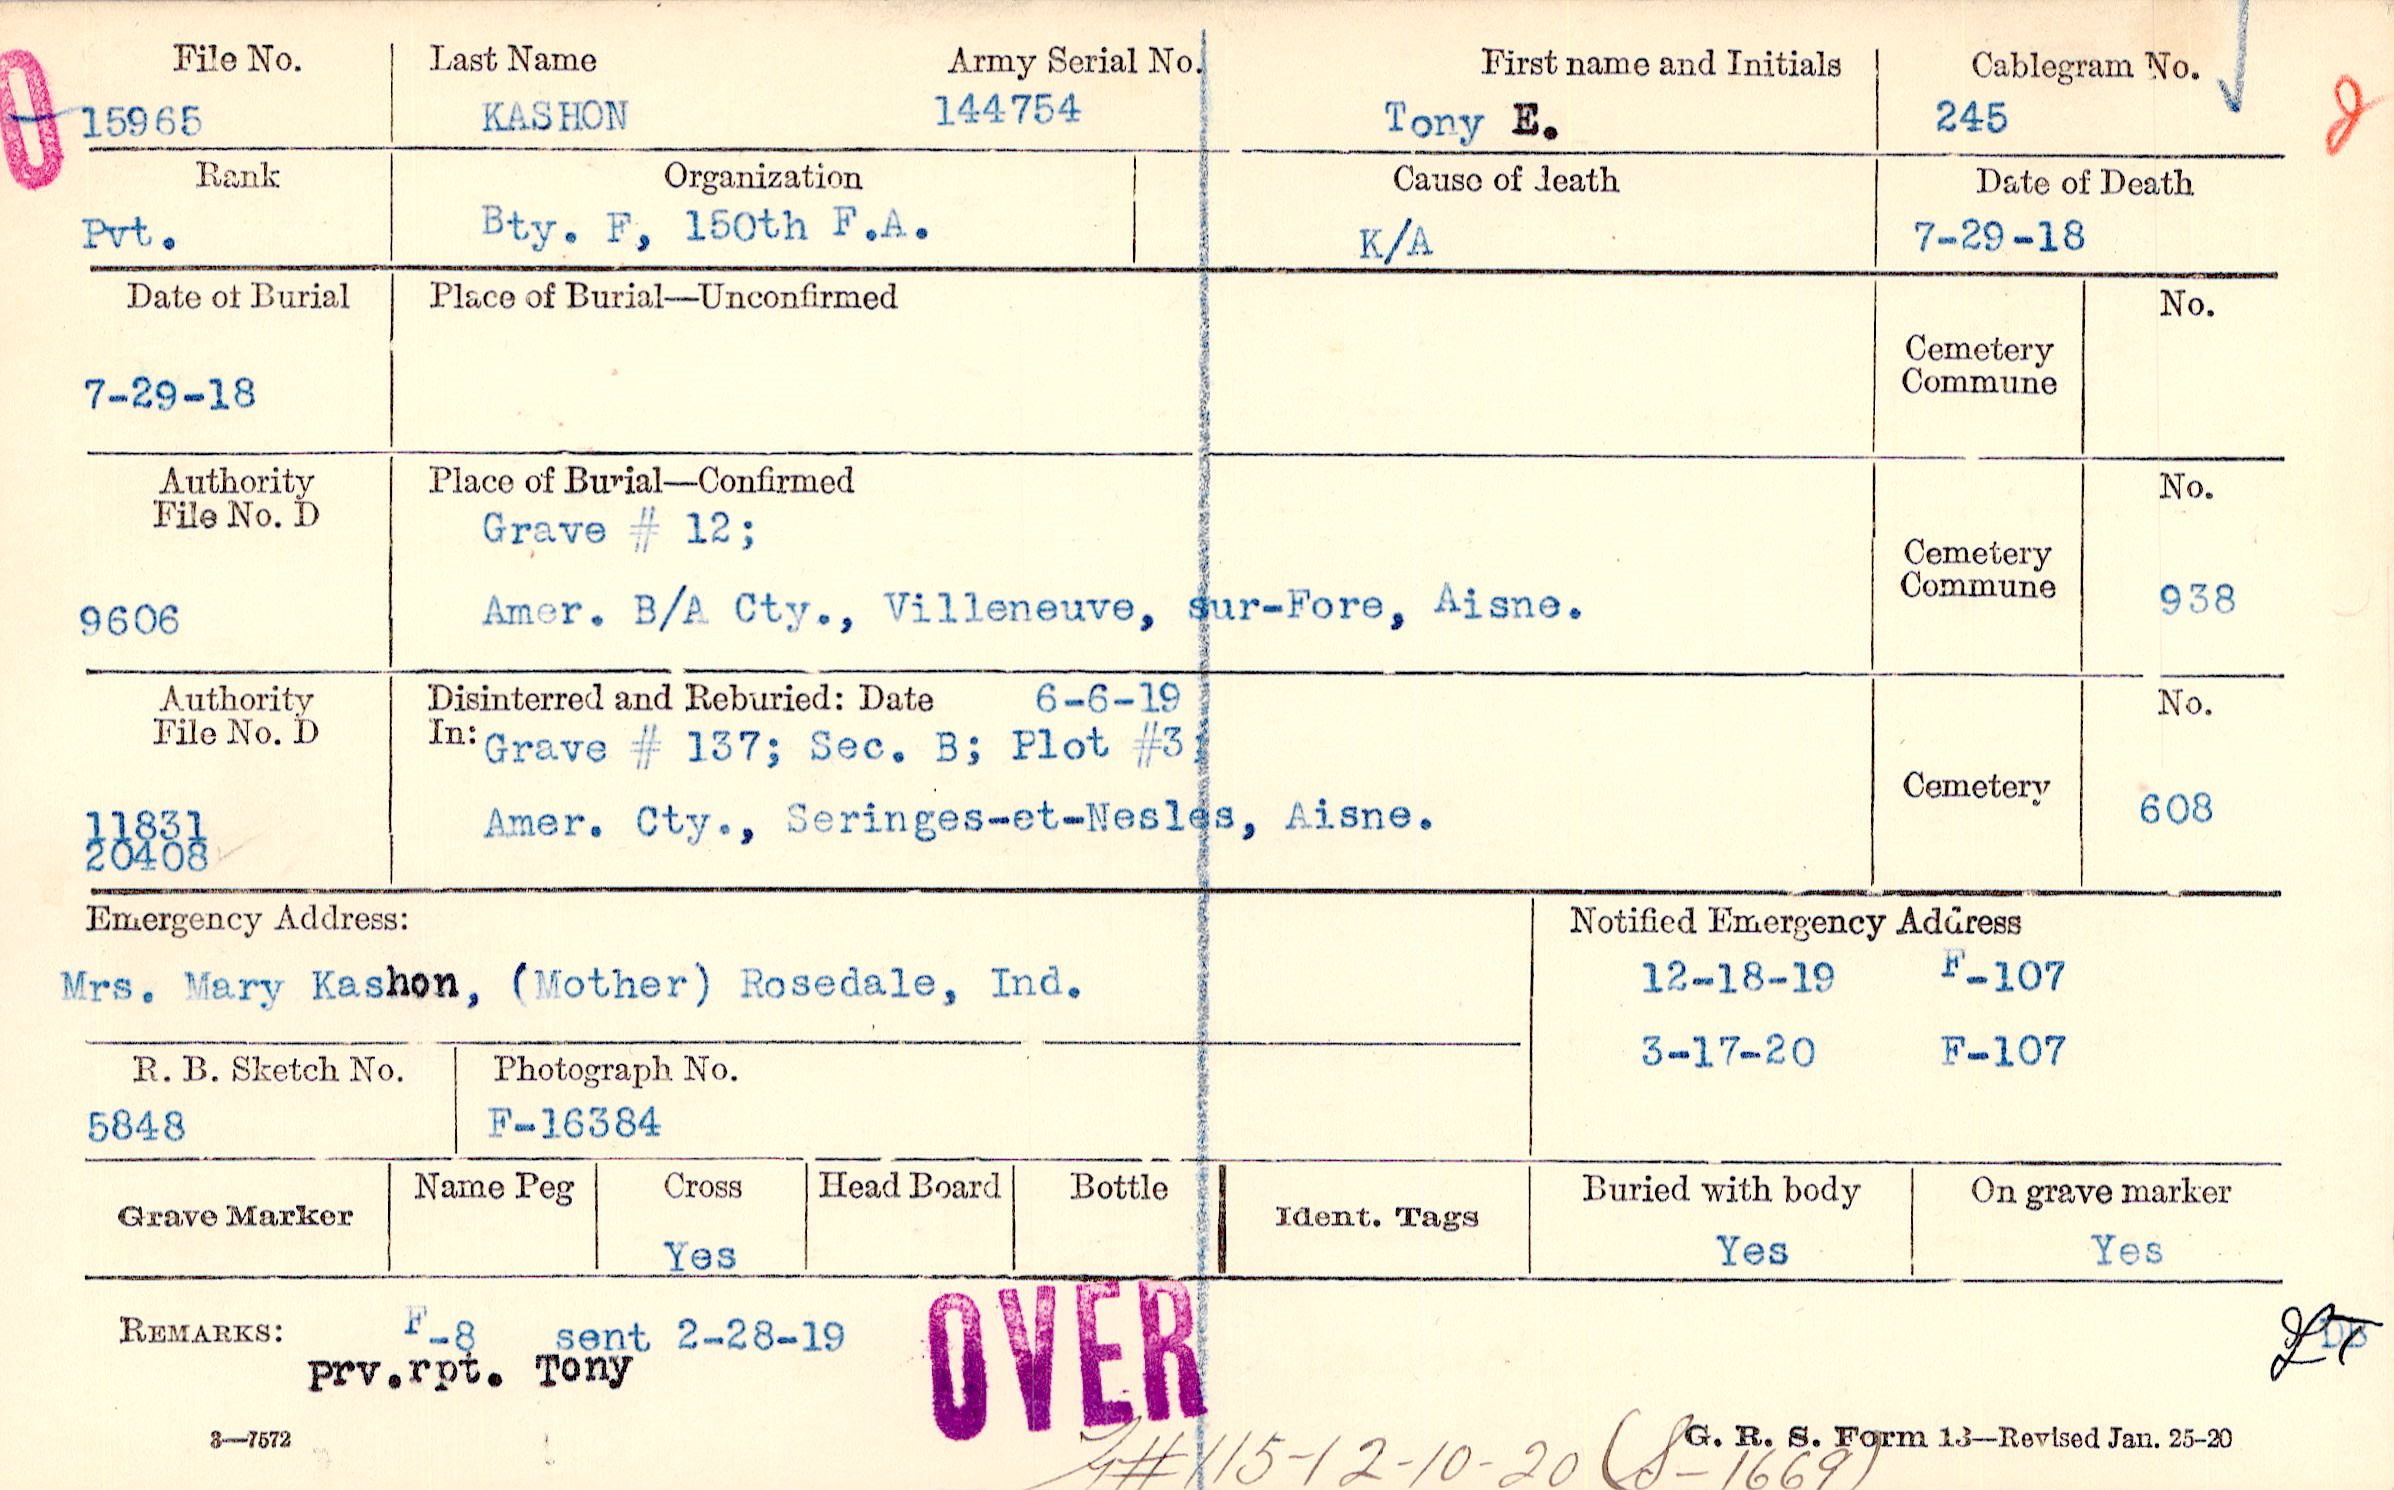 File No. Last Name Army Serial No. First name and Initials Cablegram No.
15965 KASHON 144754 Tony E. 245
Rank Organization Cause of death Date of Death
Pvt. Bty. F, 150th F.A. K/A 7-29-18
Date of Burial Place of Burial—Unconfirmed No.
Cemetery
Commune
7-29-18
Authority Place of Burial—Confirmed No.
File No. D
Grave # 12;
Cemetery
Commune
9606 Amer. B/A Cty., Villeneuve, sur-Fore, Aisne. 938
Authority Disinterred and Reburied: Date 6-6-19 No.
File No. D In: Grave # 137; Sec. B; Plot #3;
Cemetery
11831 Amer. Cty., Seringes-et-Nesles, Aisne. 608
20408
Emergency Address: Notified Emergency Address
Mrs. Mary Kashon, (Mother) Rosedale, Ind. 12-18-19 F-107
3-17-20 F-107
R. B. Sketch No. Photograph No.
5848 F-16384
Grave Marker Name Peg Cross Head Board Bottle Ident. Tags Buried with body On grave marker
Yes Yes Yes
REMARKS: F-8 sent 2-28-19
prv.rpt. Tony
OVER
3—7572 G. R. S. Form 13—Revised Jan. 25-20
#115-12-10-20 (S-1669)